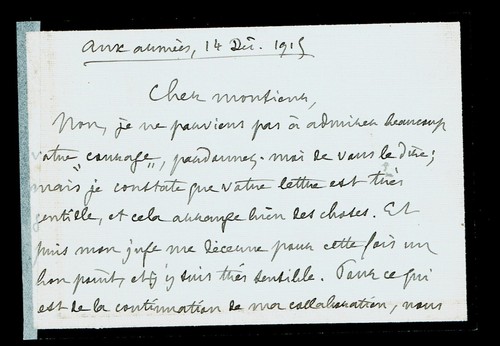 Aux armées, 14 Déc. 1915
Cher monsieur,
Non, je ne parviens pas à admirer beaucoup
votre "courage", pardonnez-moi de vous le dire;
mais je constate que votre lettre est très
gentille, et cela arrange bien des choses. Et
puis mon juge me décerne pour cette fois un
bon point, et j'y suis très sensible. Pour ce qui
est de la continuation de ma collaboration, vous